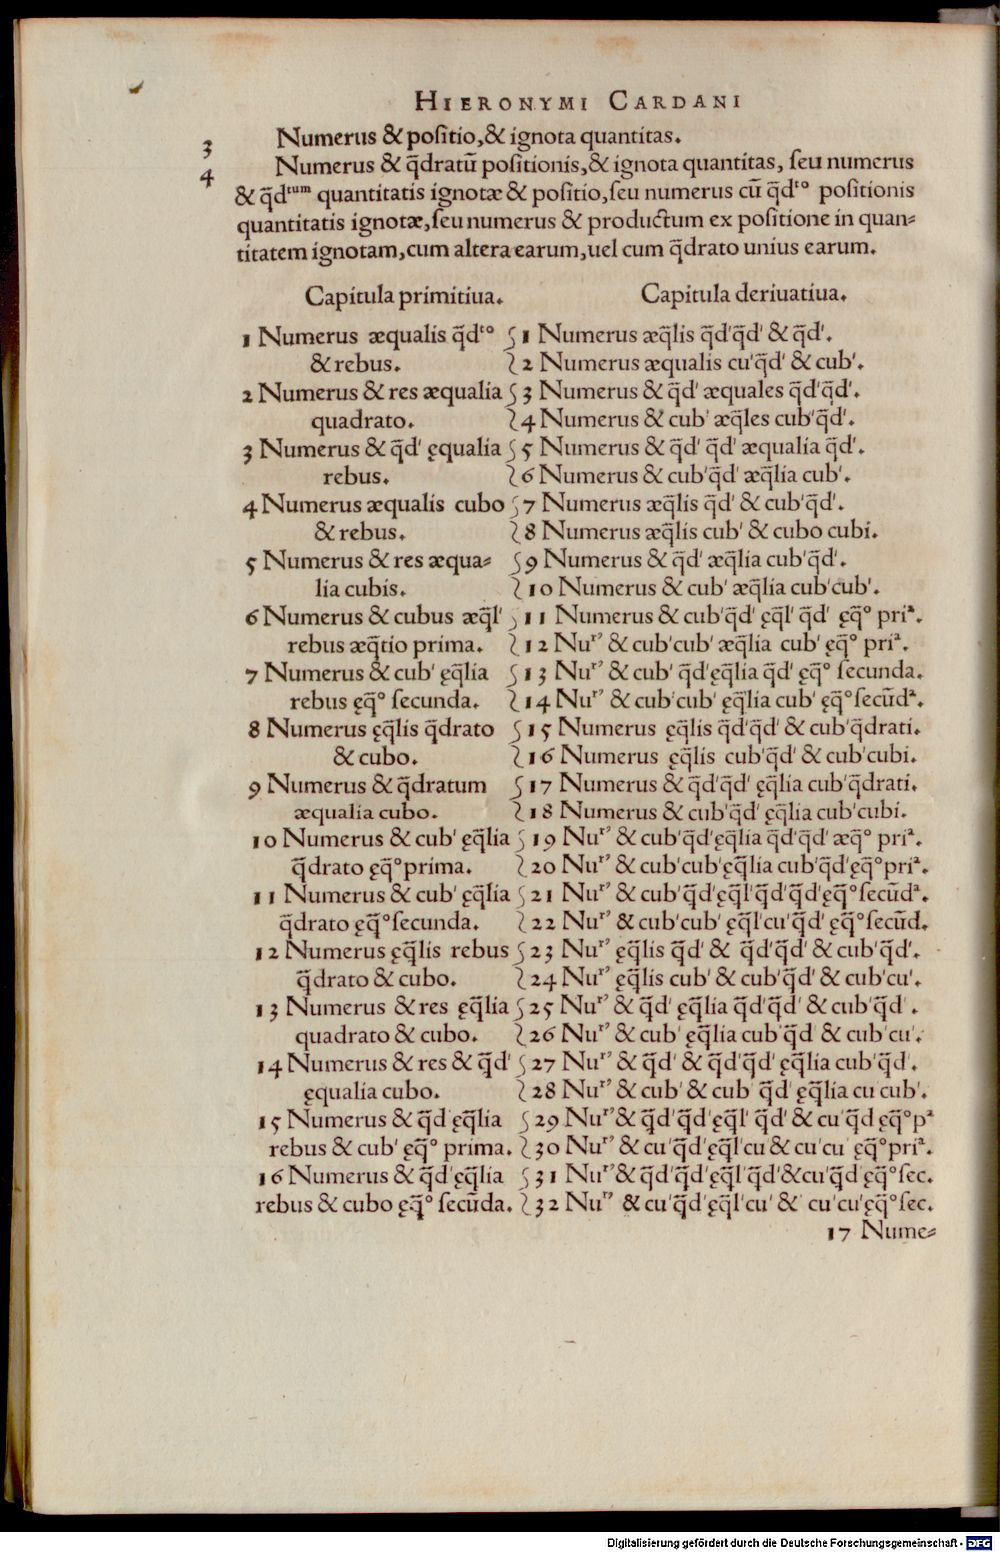 HIERONYMI CARDANI
3 Numerus & positio, & ignota quantitas.
4 Numerus & q̃dratũ positionis, & ignota quantitas, seu numerus
& q̃dᵗᵘᵐ quantitatis ignotæ & positio, seu numerus cũ q̃dᵗᵒ positionis
quantitatis ignotæ, seu numerus & productum ex positione in quan-
titatem ignotam, cum altera earum, uel cum q̃drato unius earum.
Capitula primitiua. Capitula deriuatiua.
1 Numerus æqualis q̃dᵗᵒ 1 Numerus æq̃lis q̃d'q̃d' & q̃d'.
& rebus. 2 Numerus æqualis cu'q̃d' & cub'.
2 Numerus & res æqualia 3 Numerus & q̃d' æquales q̃d'q̃d'.
quadrato. 4 Numerus & cub' æq̃les cub'q̃d'.
3 Numerus & q̃d' ęqualia 5 Numerus & q̃d' q̃d' æqualia q̃d'.
rebus. 6 Numerus & cub'q̃d' æq̃lia cub'.
4 Numerus æqualis cubo 7 Numerus æq̃lis q̃d' & cub'q̃d'.
& rebus. 8 Numerus æq̃lis cub' & cubo cubi.
5 Numerus & res æqua- 9 Numerus & q̃d' æq̃lia cub'q̃d'.
lia cubis. 10 Numerus & cub' æq̃lia cub'cub'.
6 Numerus & cubus æq̃l' 11 Numerus & cub'q̃d' ęq̃l' q̃d' ęq̃º priª.
rebus æq̃tio prima. 12 Nuʳ' & cub'cub' æq̃lia cub' ęq̃º priª.
7 Numerus & cub' ęq̃lia 13 Nuʳ' & cub' q̃d'ęq̃lia q̃d' ęq̃º secunda.
rebus ęq̃º secunda. 14 Nuʳ' & cub'cub' ęq̃lia cub' ęq̃º secũdª.
8 Numerus ęq̃lis q̃drato 15 Numerus ęq̃lis q̃d'q̃d' & cub'q̃drati.
& cubo. 16 Numerus ęq̃lis cub'q̃d' & cub'cubi.
9 Numerus & q̃dratum 17 Numerus & q̃d'q̃d' ęq̃lia cub'q̃drati.
æqualia cubo. 18 Numerus & cub'q̃d' ęq̃lia cub'cubi.
10 Numerus & cub' ęq̃lia 19 Nuʳ' & cub'q̃d'ęq̃lia q̃d'q̃d' æq̃º priª.
q̃drato ęq̃º prima. 20 Nuʳ' & cub'cub'ęq̃lia cub'q̃d'ęq̃º priª.
11 Numerus & cub' ęq̃lia 21 Nuʳ' & cub'q̃d'ęq̃l'q̃d'q̃d'ęq̃º secũdª.
q̃drato ęq̃º secunda. 22 Nuʳ' & cub'cub' ęq̃l'cu'q̃d' ęq̃º secũd.
12 Numerus ęq̃lis rebus 23 Nuʳ' ęq̃lis q̃d' & q̃d'q̃d' & cub'q̃d'.
q̃drato & cubo. 24 Nuʳ' ęq̃lis cub' & cub'q̃d' & cub'cu'.
13 Numerus & res ęq̃lia 25 Nuʳ' & q̃d' ęq̃lia q̃d'q̃d' & cub'q̃d'.
quadrato & cubo. 26 Nuʳ' & cub' ęq̃lia cub'q̃d & cub'cu'.
14 Numerus & res & q̃d' 27 Nuʳ' & q̃d' & q̃d'q̃d' ęq̃lia cub'q̃d'.
ęqualia cubo. 28 Nuʳ' & cub' & cub' q̃d ęq̃lia cu cub'.
15 Numerus & q̃d ęq̃lia 29 Nuʳ' & q̃d' q̃d'ęq̃l' q̃d' & cu'q̃d ęq̃º pª
rebus & cub' ęq̃º prima. 30 Nuʳ' & cu'q̃d'ęq̃l'cu & cu'cu ęq̃º priª.
16 Numerus & q̃d'ęq̃lia 31 Nuʳ' & q̃d'q̃d'ęq̃l'q̃d'& cu'q̃d ęq̃º sec.
rebus & cubo ęq̃º secũda. 32 Nuʳ' & cu'q̃d'ęq̃l'cu' & cu'cu'ęq̃º sec.
17 Nume-
Digitalisierung gefördert durch die Deutsche Forschungsgemeinschaft - DFG